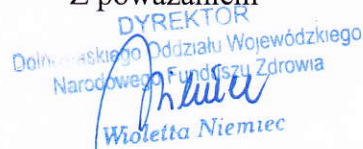 Z poważaniem
DYREKTOR
Oddziału Wojewódzkiego
Narodowego Funduszu Zdrowia
Wioletta Niemiec